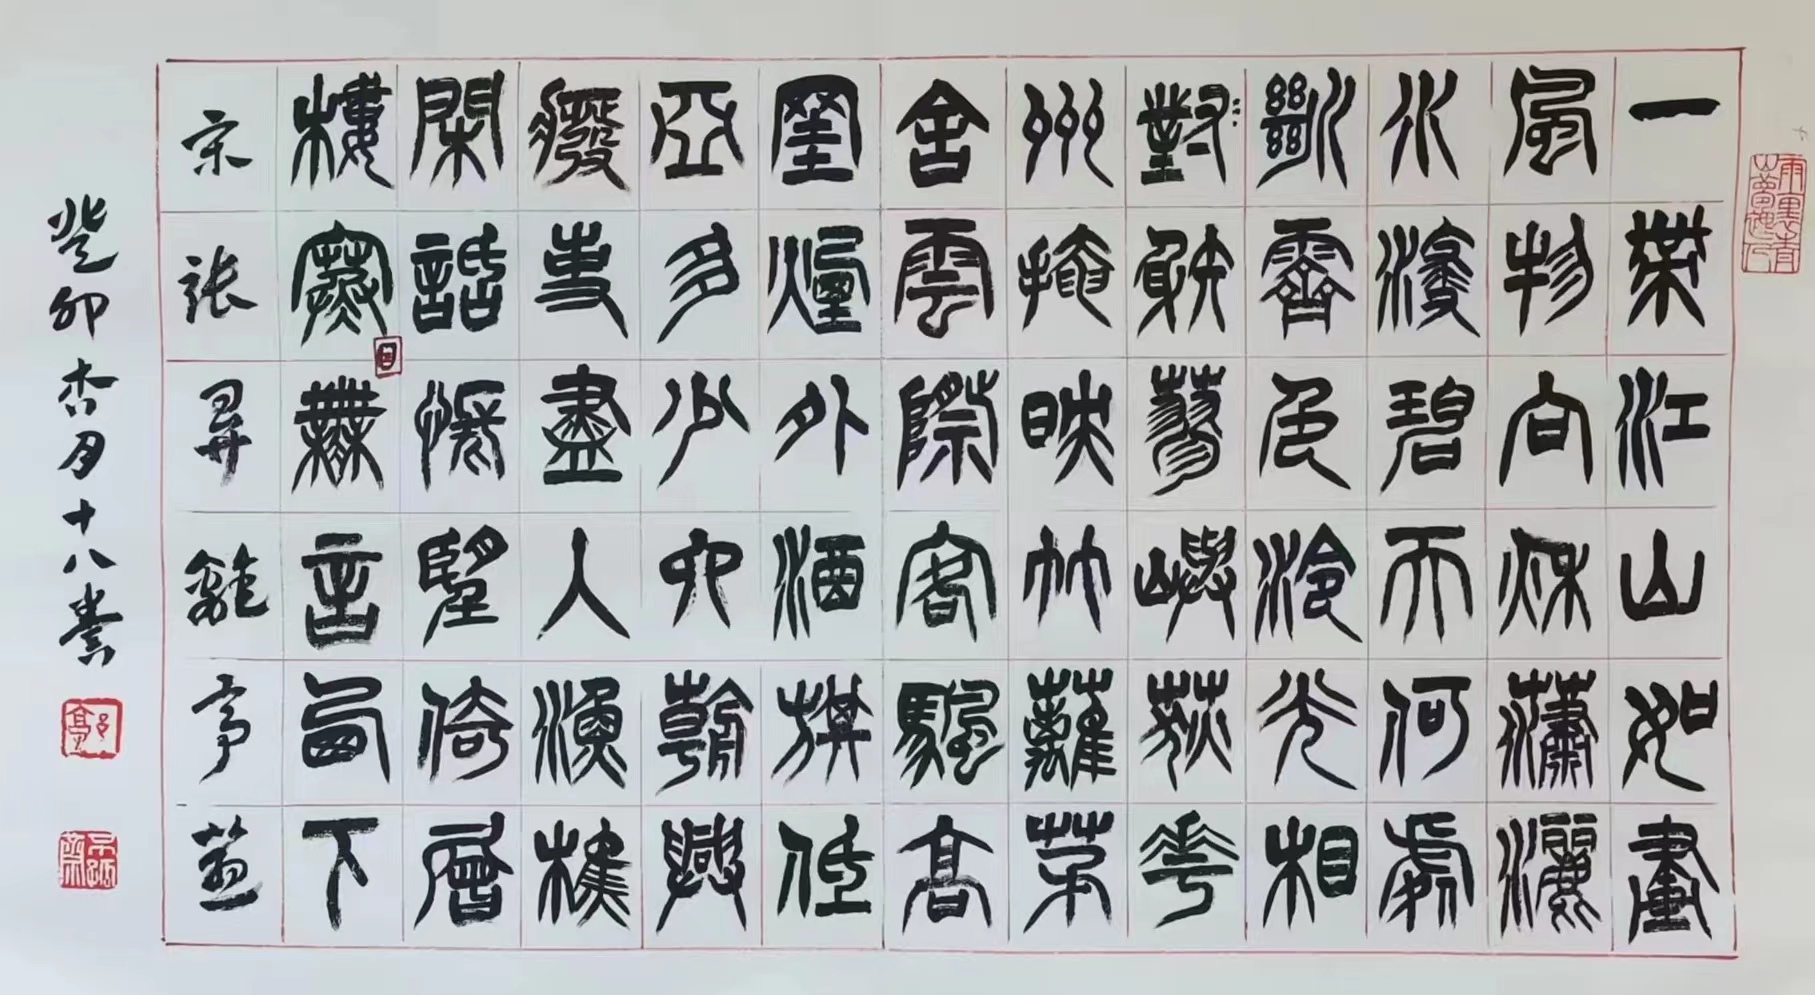 一帶江山如畫
風物向秋瀟灑
水浸碧天何處
斷霽色冷光相
對射蓼嶼荻花
州掩映竹蘿茅
舍雲際客颿高
罣煙外酒旗低
亞多少六朝興
癈事盡人漁樵
閑話悵望倚層
樓寒日無言西下
宋张昪離亭燕
癸卯杏月十八書